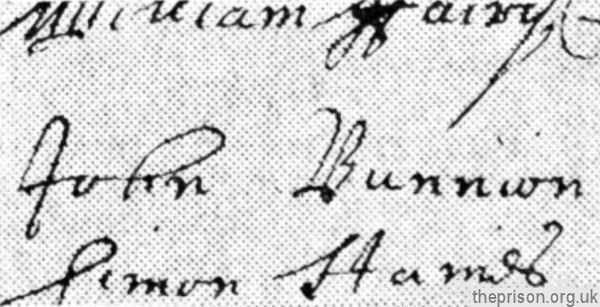 William
John Bunnion
Simon Hames
theprison.org.uk